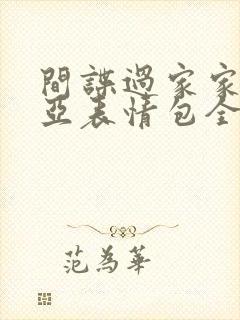 間諜過家家
亞表情包全
范為華